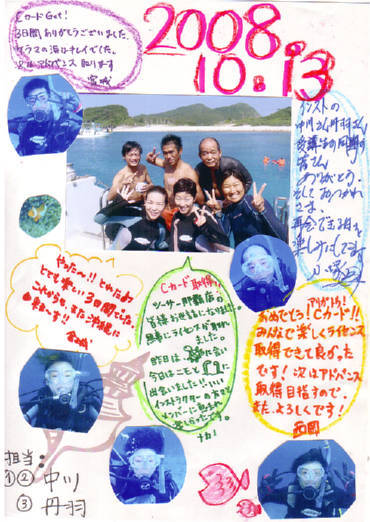 2008.
10.13
Cカード Get!
3日間ありがとうございました。
ケラマの海はキレイでした。
次はアドバンス取ります
宮城
インストの
中川さん、丹羽さん
皆さん
ありがとう。
そしておつかれ
さま。
再会できる日を
楽しみにしてます
やったー!! とれたよ
とても楽しい3日間でした
Cカード取得!!
シーサー那覇店の
皆様お世話になりました。
無事にライセンスが取れ
ました。
昨日は
今日は
出会いました!! いい
インストラクターの方々
メンバーに恵まれ
楽しかったです。
おめでとう! Cカード!!
みんなで楽しくライセンス
取得できて良かった
です! 次はアドバンス
取得目指すので、
また、よろしくです!
西岡
担当:
①② 中川
③ 丹羽